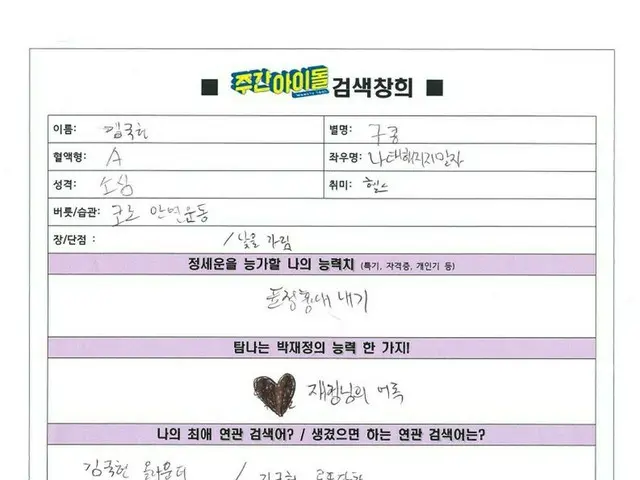 ■ 주간아이돌 검색창희 ■
이름: 김국헌 별명: 구콩
혈액형: A 좌우명: 나태해지지말자
성격: 소심 취미: 헬스
버릇/습관: 코로 안면운동
장/단점 : / 낯을 가림
정세운을 능가할 나의 능력치 (특기, 자격증, 개인기 등)
표정흉내 내기
탐나는 박재정의 능력 한 가지!
재정님의 어록
나의 최애 연관 검색어? / 생겼으면 하는 연관 검색어는?
김국헌 올라운더 / 김국헌